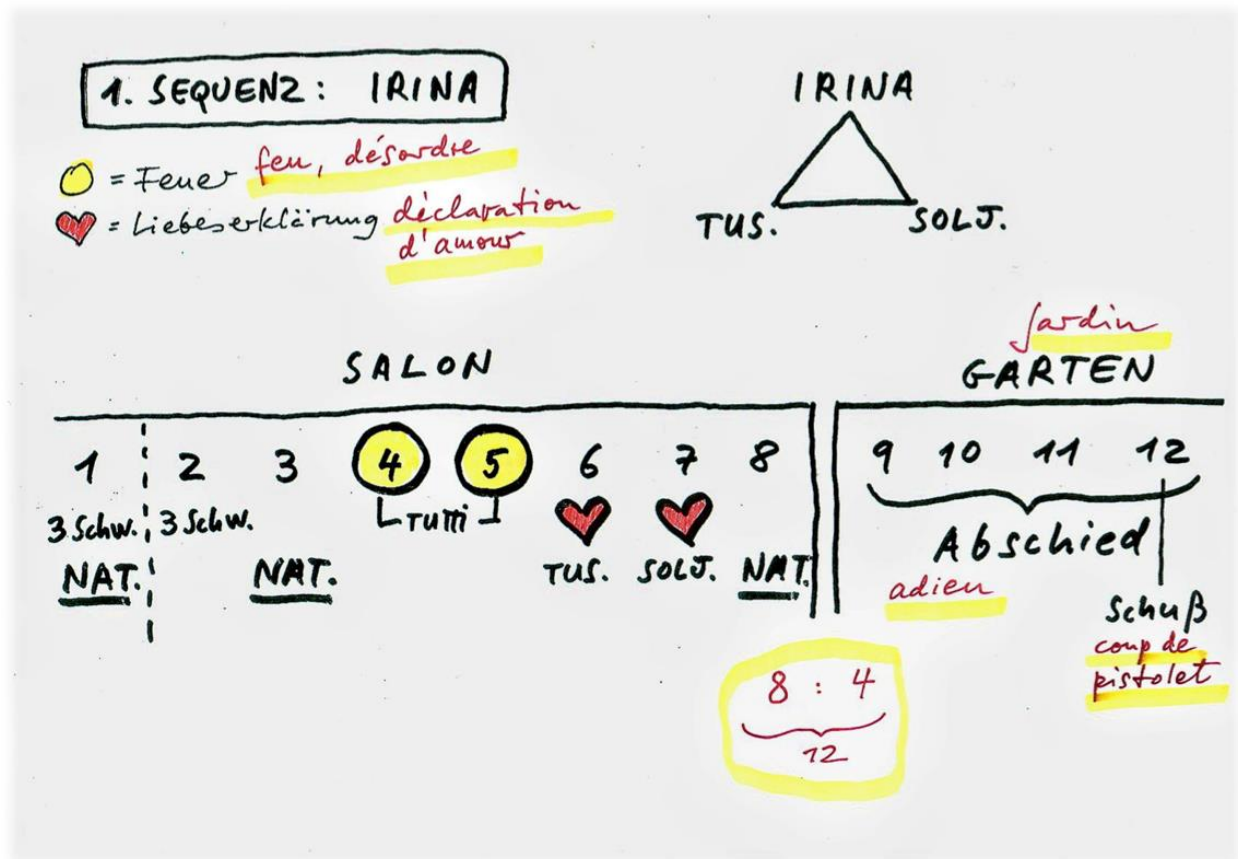 1. SEQUENZ: IRINA
IRINA
TUS. SOLJ.
= Feuer feu, désordre
= Liebeserklärung déclaration
d'amour
SALON
jardin
GARTEN
1 2 3 4 5 6 7 8 9 10 11 12
3 Schw. 3 Schw. Tutti
NAT. NAT. TUS. SOLJ. NAT.
Abschied
adieu
Schuß
coup de
pistolet
8 : 4
12